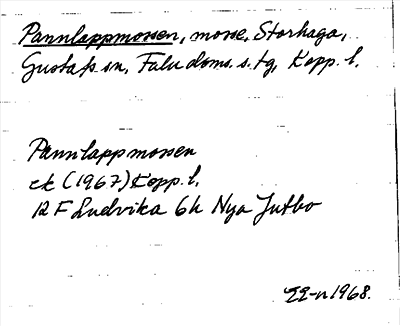 Pannlappmossen, mosse, Storhaga,
Gustafs sn, Falu doms. s. tg, Kopp. l.
Pannlappmossen
ek (1967) Kopp. l.
12 F Ludvika 6h Nya Jutbo
1968.